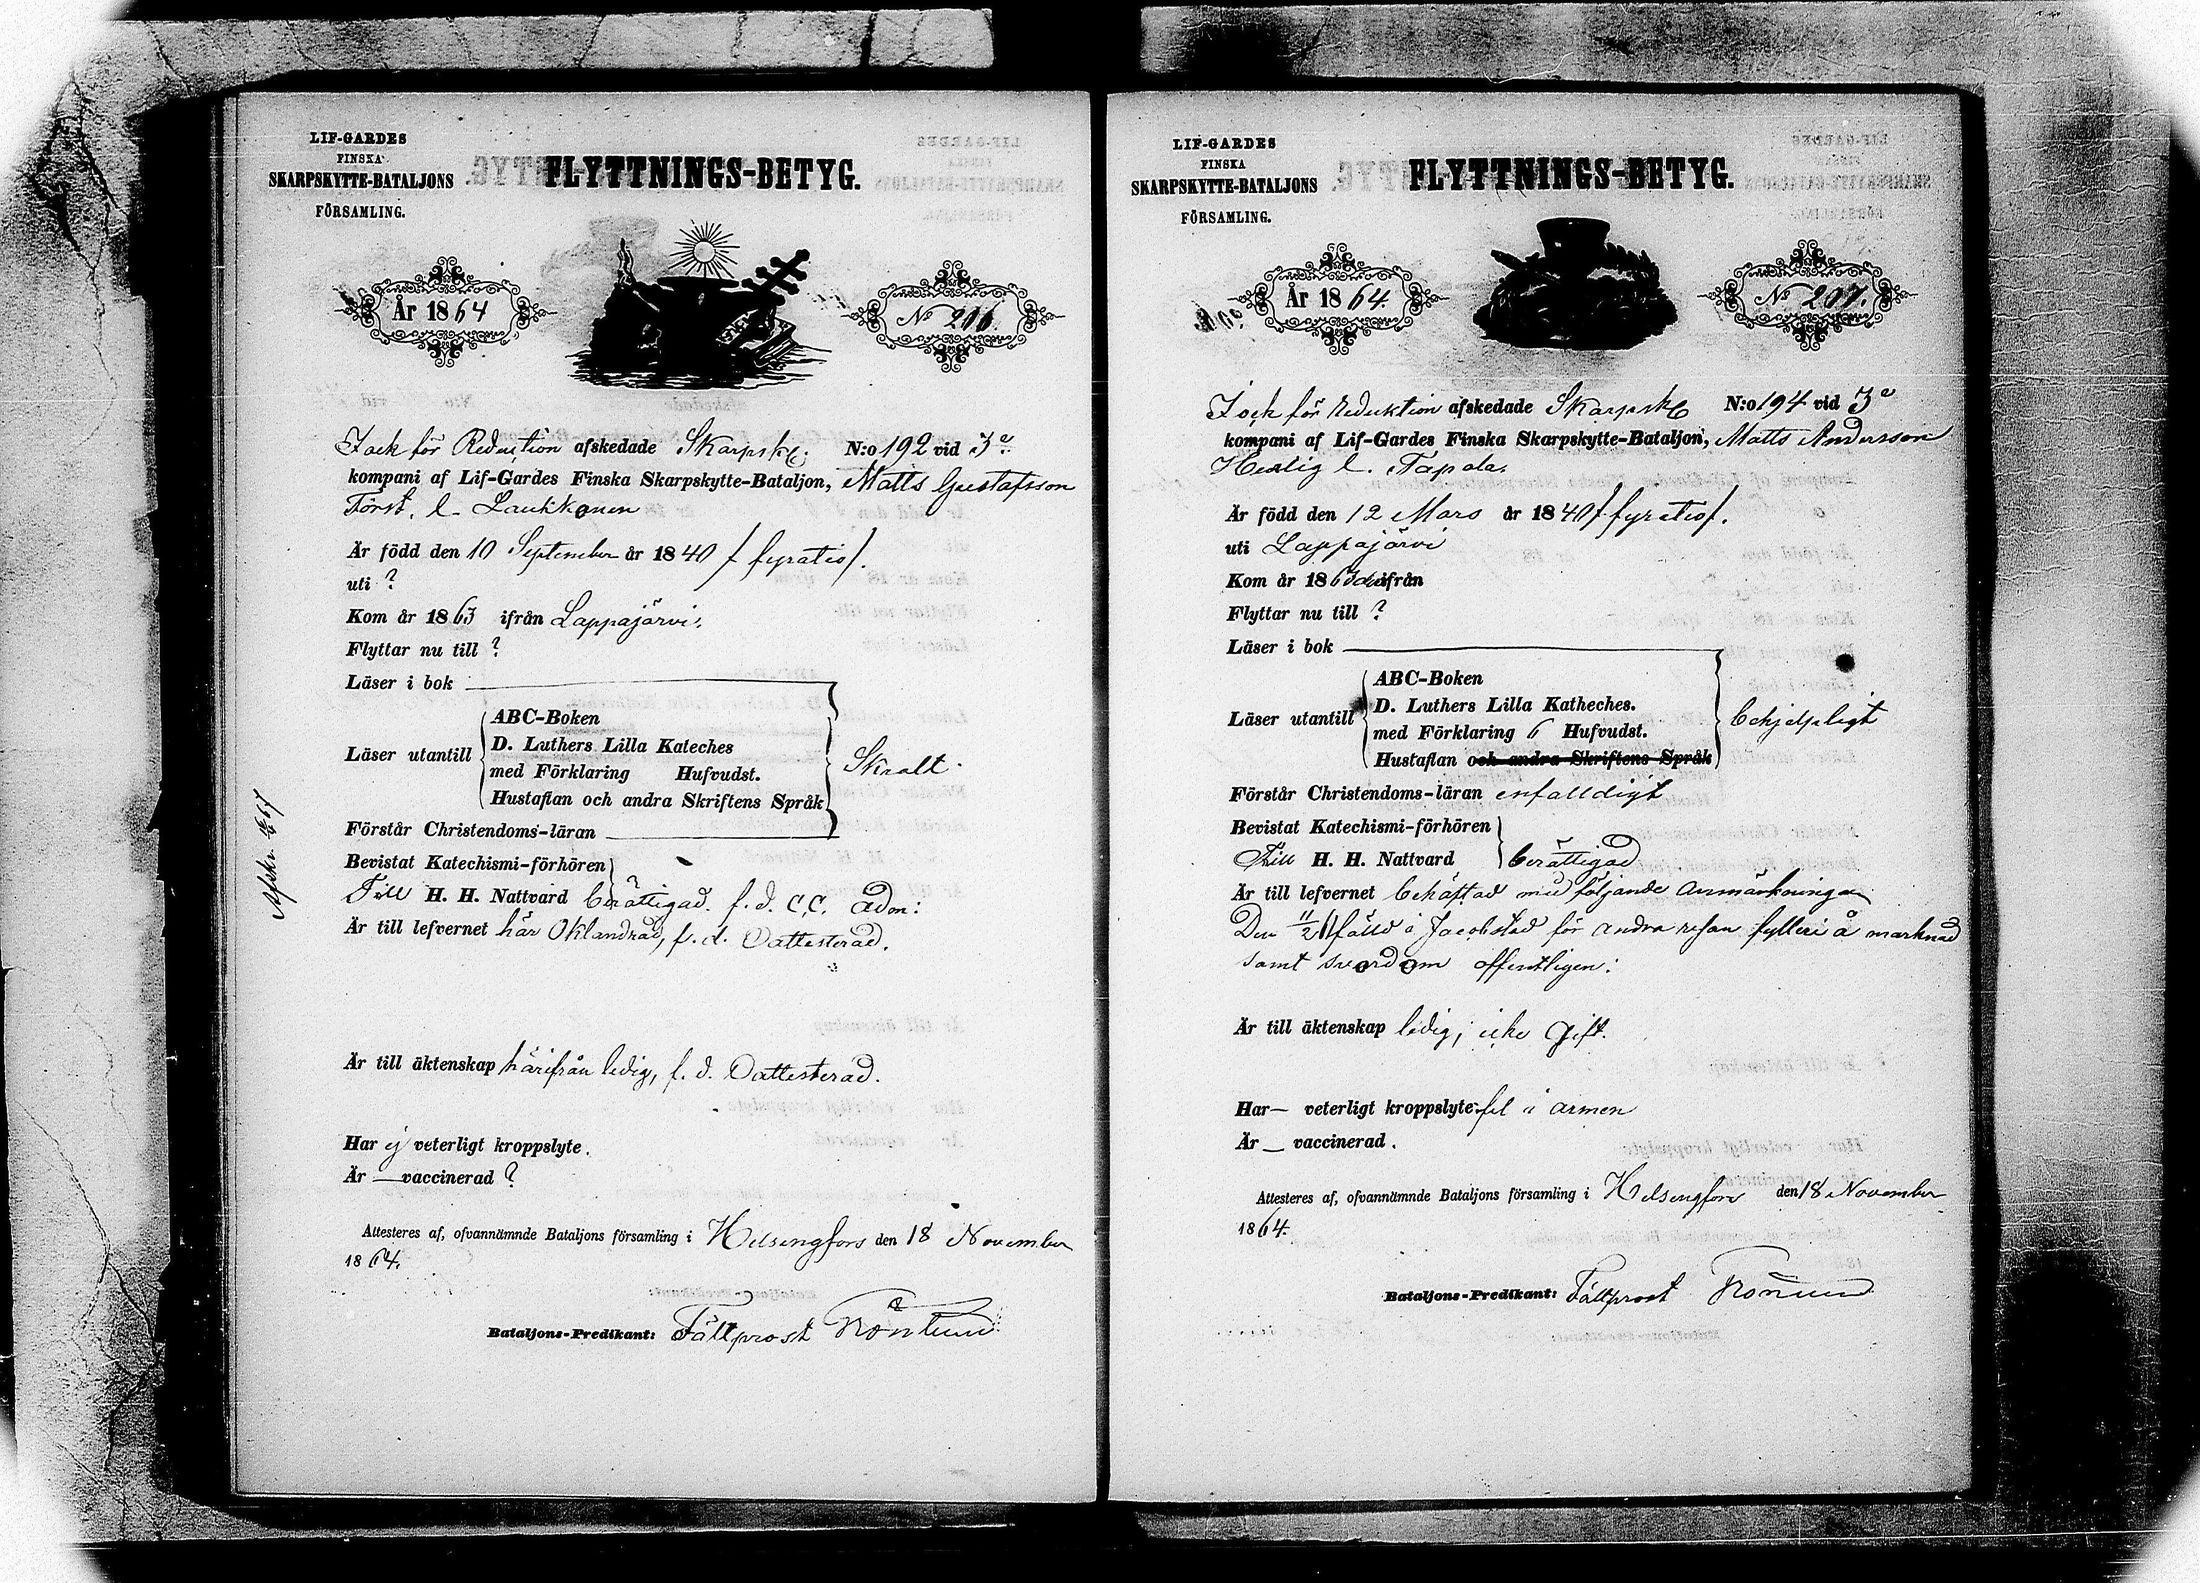 LIF-GARDES
FINSKA
SKARPSKYTTE-BATALJONS
FÖRSAMLING.
FLYTTNINGS-BETYG.
År 1864
No 206.
för Reduction afskedade Skarpsk. N:o 192 vid 3e
kompani af Lif-Gardes Finska Skarpskytte-Bataljon, Matts Gustafsson
Först. l. Laukkonen
Är född den 10 September år 1840 / fyratio /.
uti ?
Kom år 1863 ifrån Lappajärvi.
Flyttar nu till ?
Läser i bok
ABC-Boken
Läser utantill D. Luthers Lilla Kateches
med Förklaring Hufvudst.
Hustaflan och andra Skriftens Språk
Skralt.
Förstår Christendoms-läran
Bevistat Katechismi-förhören
Till H. H. Nattvard berättigad. f. d. C.C. Adm:
Är till lefvernet här Oklandrad, f. d. Oattesterad.
Är till äktenskap härifrån ledig, f. d. Oattesterad.
Har ej veterligt kroppslyte.
Är — vaccinerad ?
Attesteres af, ofvannämnde Bataljons församling i Helsingfors den 18 November
1864.
Bataljons-Predikant: Fältprost
LIF-GARDES
FINSKA
SKARPSKYTTE-BATALJONS
FÖRSAMLING.
FLYTTNINGS-BETYG.
År 1864.
No 207.
för Reduktion afskedade Skarpsk N:o 194 vid 3e
kompani af Lif-Gardes Finska Skarpskytte-Bataljon, Matts Andersson
l.
Är född den 12 Mars år 1840 / fyratio /.
uti Lappajärvi
Kom år 1863 ifrån
Flyttar nu till ?
Läser i bok
ABC-Boken
Läser utantill D. Luthers Lilla Katheches.
med Förklaring 6 Hufvudst.
Hustaflan och andra Skriftens Språk
behjelpligt
Förstår Christendoms-läran enfalldigt
Bevistat Katechismi-förhören
Till H. H. Nattvard berättigad
Är till lefvernet behäftad med följande anmärkningar
Den 11/2 61 fälld i Jacobstad för andra resan fylleri å marknad
samt svordom offentligen:
Är till äktenskap ledig, icke gift.
Har — veterligt kroppslyte fel i armen
Är — vaccinerad.
Attesteres af, ofvannämnde Bataljons församling i Helsingfors den 18 November
1864.
Bataljons-Predikant: Fältprost